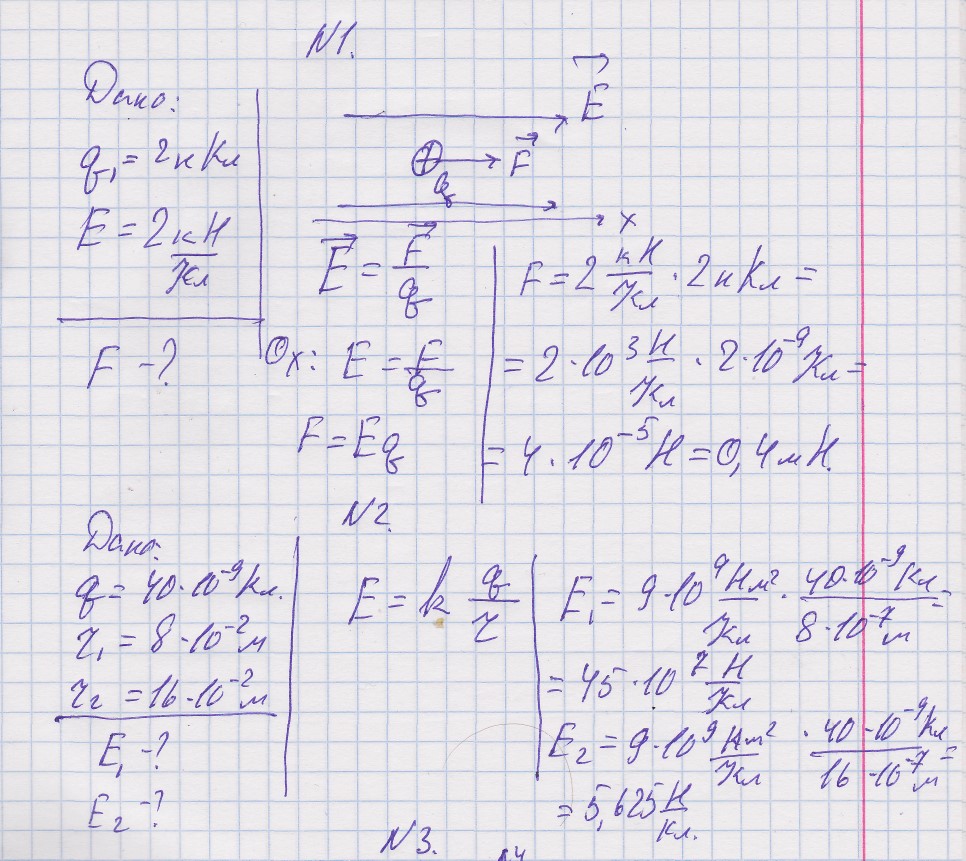 N1.
Дано:
q₁ = 2нКл
E = 2 кН/Кл
F - ?
E⃗
F⃗
q
x
E⃗ = F⃗/q
Ox: E = F/q
F = Eq
F = 2 кН/Кл · 2нКл =
= 2·10³ Н/Кл · 2·10⁻⁹Кл =
= 4·10⁻⁵Н = 0,4мН.
N2.
Дано:
q = 40·10⁻⁹Кл.
r₁ = 8·10⁻²м
r₂ = 16·10⁻²м
E₁ - ?
E₂ - ?
E = k q/r
E₁ = 9·10⁹ Нм²/Кл · 40·10⁻⁹Кл/8·10⁻⁷м =
= 45·10⁷ Н/Кл
E₂ = 9·10⁹ Нм²/Кл · 40·10⁻⁹Кл/16·10⁻⁷м =
= 5,625 Н/кл.
N3.